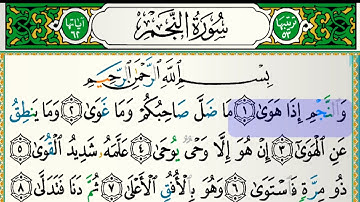 ترتيبها ٥٣
سُورَةُ النَّجْمِ
آياتها ٦٢
بِسْمِ اللَّهِ الرَّحْمَٰنِ الرَّحِيمِ
وَالنَّجْمِ إِذَا هَوَىٰ ١ مَا ضَلَّ صَاحِبُكُمْ وَمَا غَوَىٰ ٢ وَمَا يَنطِقُ
عَنِ الْهَوَىٰ ٣ إِنْ هُوَ إِلَّا وَحْيٌ يُوحَىٰ ٤ عَلَّمَهُ شَدِيدُ الْقُوَىٰ ٥
ذُو مِرَّةٍ فَاسْتَوَىٰ ٦ وَهُوَ بِالْأُفُقِ الْأَعْلَىٰ ٧ ثُمَّ دَنَا فَتَدَلَّىٰ ٨